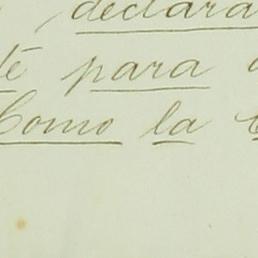 declara
te para
Como la